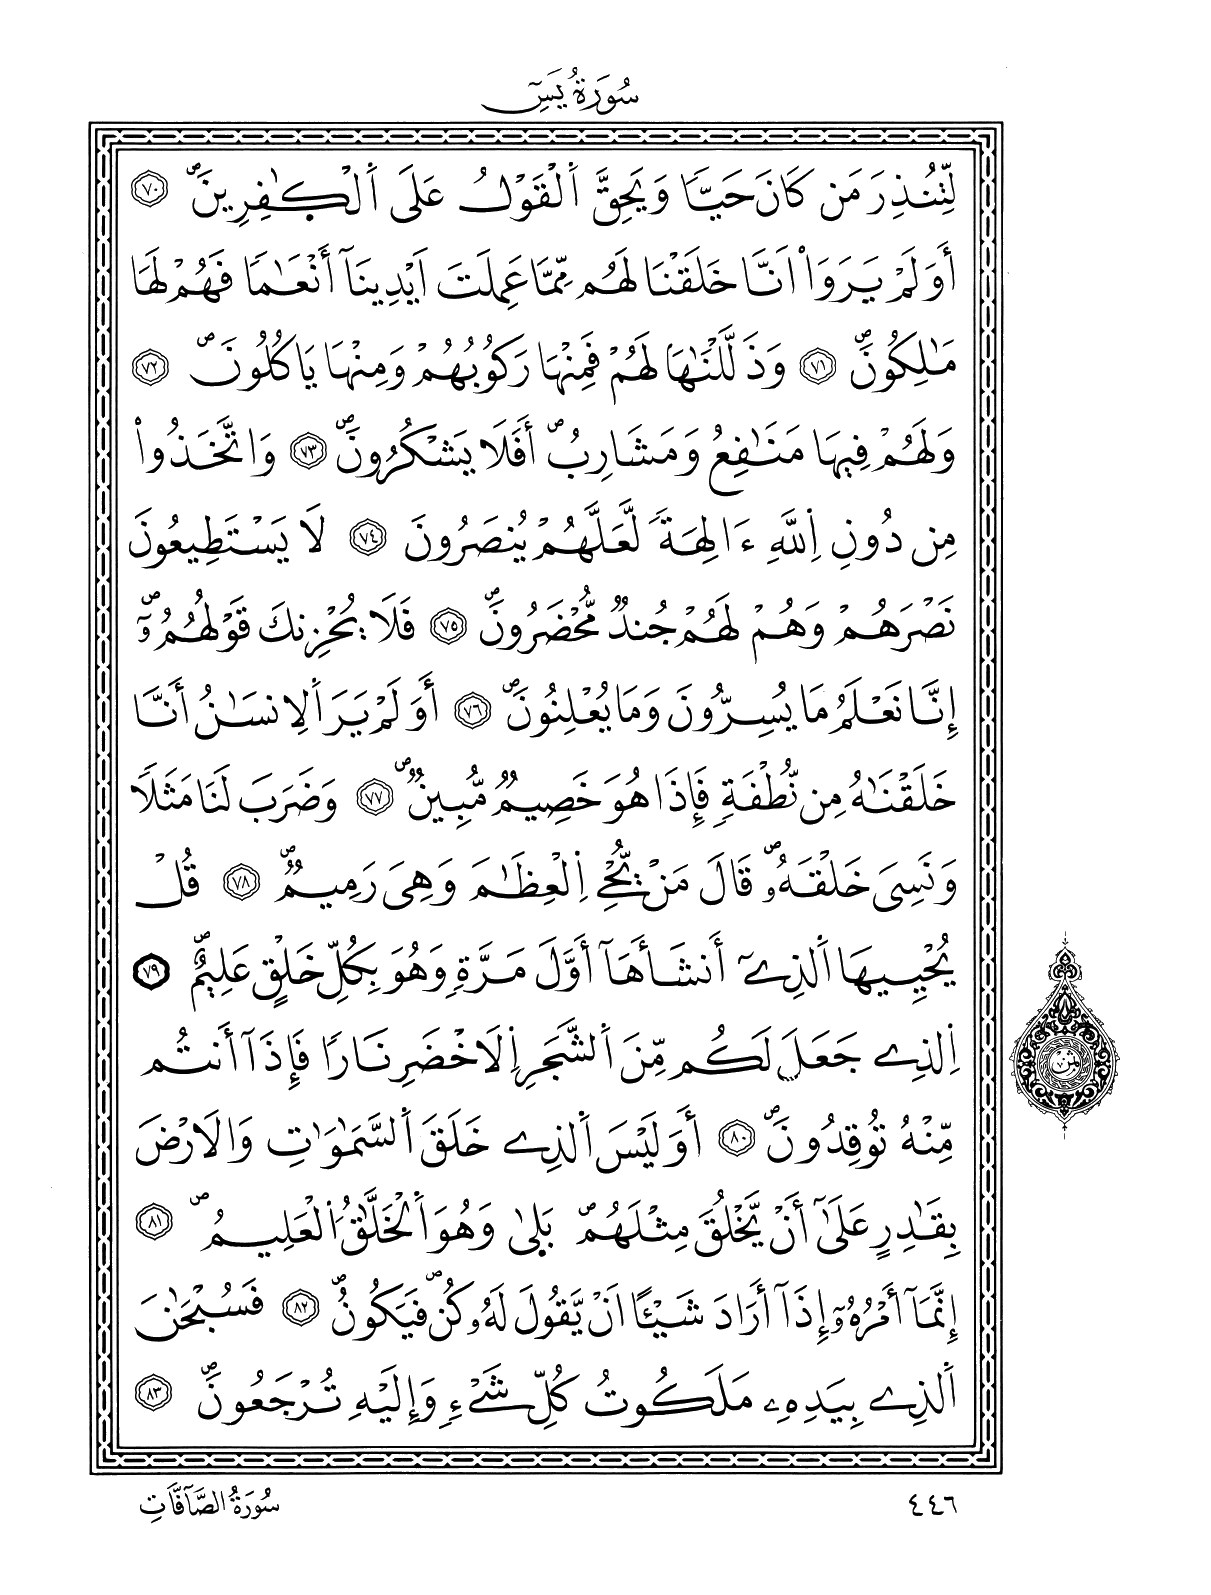 سُورَةُ يَسٓ
لِّتُنذِرَ مَن كَانَ حَيّاٗ وَيَحِقَّ اَ۬لْقَوْلُ عَلَى اَ۬لْكٰ۪فِرِينَۖ ٧٠
أَوَلَمْ يَرَوَاْ اَنَّا خَلَقْنَا لَهُم مِّمَّا عَمِلَتَ اَيْدِينَآ أَنْعَٰماٗ فَهُمْ لَهَا
مَٰلِكُونَۖ ٧١ وَذَلَّلْنَٰهَا لَهُمْ فَمِنْهَا رَكُوبُهُمْ وَمِنْهَا يَاكُلُونَۖ ٧٢
وَلَهُمْ فِيهَا مَنَٰفِعُ وَمَشَارِبُۖ أَفَلَا يَشْكُرُونَۖ ٧٣ وَاتَّخَذُواْ
مِن دُونِ اِ۬للَّهِ ءَالِهَةٗ لَّعَلَّهُمْ يُنصَرُونَ ٧٤ لَا يَسْتَطِيعُونَ
نَصْرَهُمْ وَهُمْ لَهُمْ جُندٞ مُّحْضَرُونَۖ ٧٥ فَلَا يُحْزِنكَ قَوْلُهُمُۥٓۖ
إِنَّا نَعْلَمُ مَا يُسِرُّونَ وَمَا يُعْلِنُونَۖ ٧٦ أَوَلَمْ يَرَ اَ۬لِانسَٰنُ أَنَّا
خَلَقْنَٰهُ مِن نُّطْفَةٖ فَإِذَا هُوَ خَصِيمٞ مُّبِينٞۖ ٧٧ وَضَرَبَ لَنَا مَثَلاٗ
وَنَسِيَ خَلْقَهُۥۖ قَالَ مَنْ يُّحْيِ اِ۬لْعِظَٰمَ وَهِيَ رَمِيمٞۖ ٧٨ قُلْ
يُحْيِيهَا اَ۬لذِےٓ أَنشَأَهَآ أَوَّلَ مَرَّةٖ وَهُوَ بِكُلِّ خَلْقٍ عَلِيمٌۖ ٧٩
اِ۬لذِے جَعَلَ لَكُم مِّنَ اَ۬لشَّجَرِ اِ۬لَاخْضَرِ نَاراٗ فَإِذَآ أَنتُم
مِّنْهُ تُوقِدُونَۖ ٨٠ أَوَلَيْسَ اَ۬لذِے خَلَقَ اَ۬لسَّمَٰوَٰتِ وَالَارْضَ
بِقَٰدِرٍ عَلَىٰٓ أَنْ يَّخْلُقَ مِثْلَهُمۖ بَل۪ىٰ وَهُوَ اَ۬لْخَلَّٰقُ اُ۬لْعَلِيمُۖ ٨١
إِنَّمَآ أَمْرُهُۥٓ إِذَآ أَرَادَ شَيْـٔاً اَنْ يَّقُولَ لَهُۥ كُنۖ فَيَكُونُۖ ٨٢ فَسُبْحَٰنَ
اَ۬لذِے بِيَدِهِۦ مَلَكُوتُ كُلِّ شَےْءٖ وَإِلَيْهِ تُرْجَعُونَۖ ٨٣
ثمن
٤٤٦
سُورَةُ الصَّآفَّاتِ